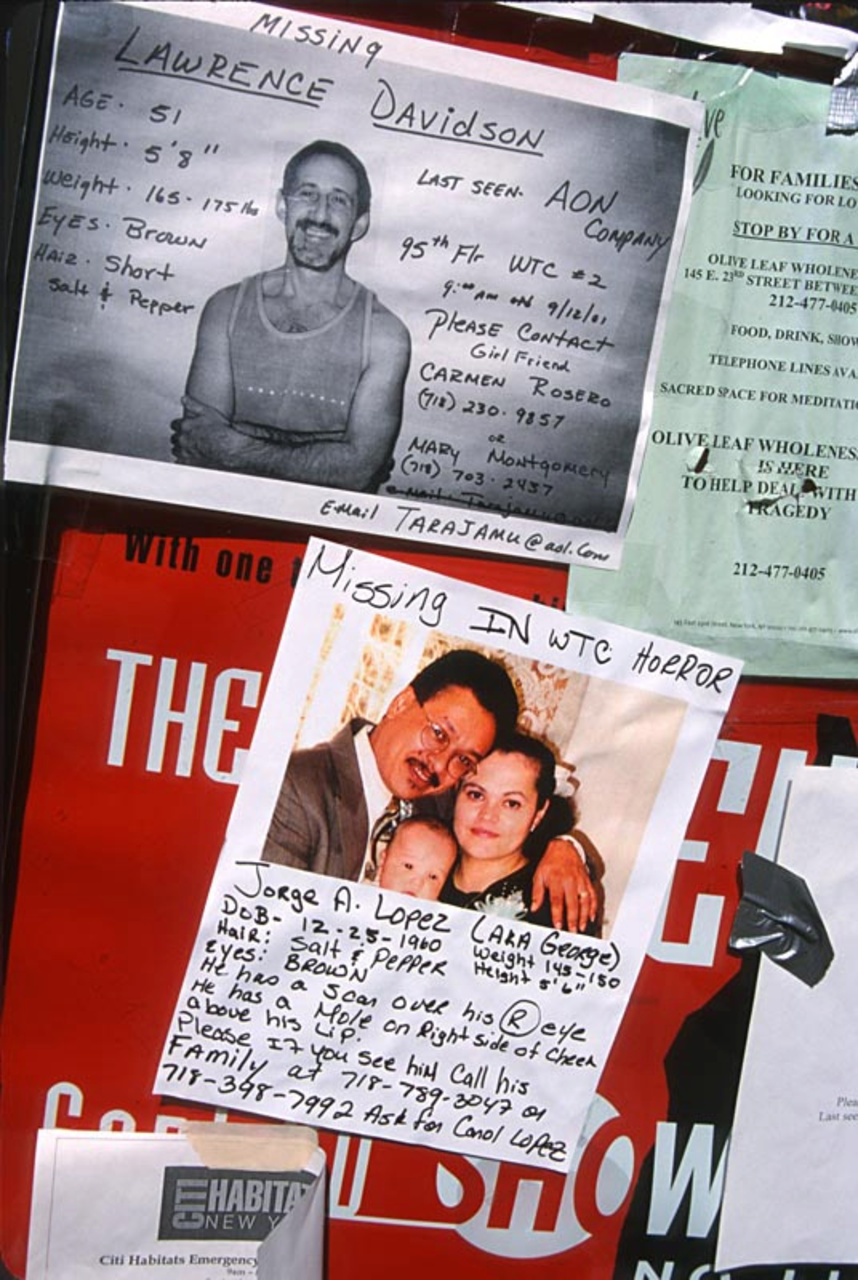 MISSING
LAWRENCE DAVIDSON
AGE · 51
Height · 5'8"
Weight · 165 - 175 lbs
EYES · BROWN
HAIR · Short
Salt & Pepper
LAST SEEN - AON
COMPANY
95th Flr WTC #2
9/12/01
PLEASE CONTACT
Girl Friend
CARMEN ROSERO
(718) 230·9857
or
MARY Montgomery
(718) 703·2437
E-Mail TARAJAMU@aol.com
FOR FAMILIES
LOOKING FOR LO
STOP BY FOR A
OLIVE LEAF WHOLENE
145 E. 23RD STREET BETWEE
212-477-0405
FOOD, DRINK, SHOW
TELEPHONE LINES AVA
SACRED SPACE FOR MEDITATI
OLIVE LEAF WHOLENES
IS HERE
TO HELP DEAL WITH
TRAGEDY
212-477-0405
With one
THE
Missing IN WTC HORROR
Jorge A. Lopez (AKA George)
DOB- 12-25-1960 Weight 145-150
Hair: Salt & PEPPER Height 5'6"
Eyes: BROWN
He has a Scar over his R eye
He has a Mole on Right side of Cheek
above his Lip.
Please If you see him Call his
Family at 718-789-3047 or
718-398-7992 Ask for Carol Lopez
SHOW
CITI HABITA
NEW Y
Citi Habitats Emergency
Plea
Last see